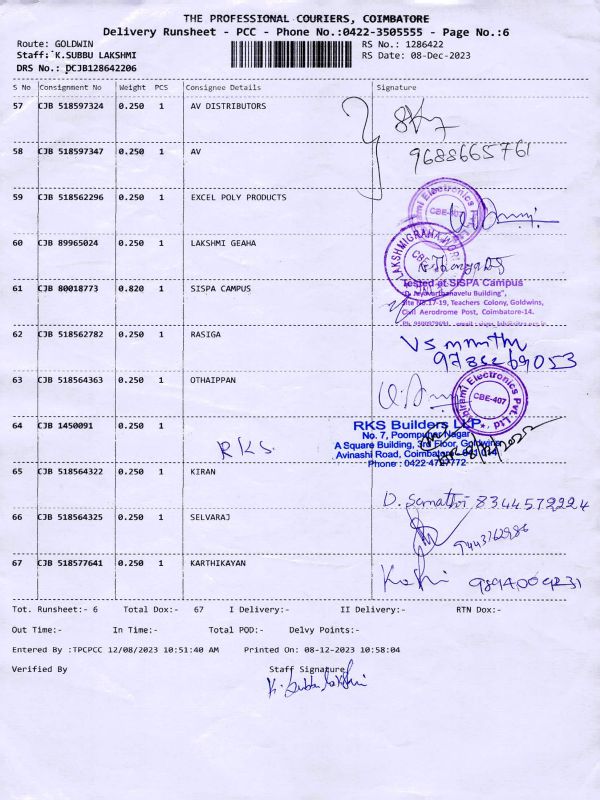 THE PROFESSIONAL COURIERS, COIMBATORE
Delivery Runsheet - PCC - Phone No.:0422-3505555 - Page No.:6
Route: GOLDWIN RS No.: 1286422
Staff: K.SUBBU LAKSHMI RS Date: 08-Dec-2023
DRS No.: DCJB128642206
S No Consignment No Weight PCS Consignee Details Signature
57 CJB 518597324 0.250 1 AV DISTRIBUTORS
58 CJB 518597347 0.250 1 AV
9688665761
59 CJB 518562296 0.250 1 EXCEL POLY PRODUCTS
Electronics Pvt. Ltd
CBE-407
60 CJB 89965024 0.250 1 LAKSHMI GEAHA
LAKSHMIGRAHA
61 CJB 80018773 0.820 1 SISPA CAMPUS
Tested at SISPA Campus
Building",
Site No.17-19, Teachers Colony, Goldwins,
Civil Aerodrome Post, Coimbatore-14.
62 CJB 518562782 0.250 1 RASIGA
63 CJB 518564363 0.250 1 OTHAIPPAN
Electronics Pvt. Ltd
CBE-407
64 CJB 1450091 0.250 1
RKS
RKS Builders LLP
No. 7, Poompuhar Nagar
A Square Building, 3rd Floor, Goldwins
Avinashi Road, Coimbatore
65 CJB 518564322 0.250 1 KIRAN
D. Sumathi 8344572224
66 CJB 518564325 0.250 1 SELVARAJ
9443762986
67 CJB 518577641 0.250 1 KARTHIKAYAN
Tot. Runsheet:- 6 Total Dox:- 67 I Delivery:- II Delivery:- RTN Dox:-
Out Time:- In Time:- Total POD:- Delvy Points:-
Entered By :TPCPCC 12/08/2023 10:51:40 AM Printed On: 08-12-2023 10:58:04
Verified By Staff Signature
K. Subbu lakshmi